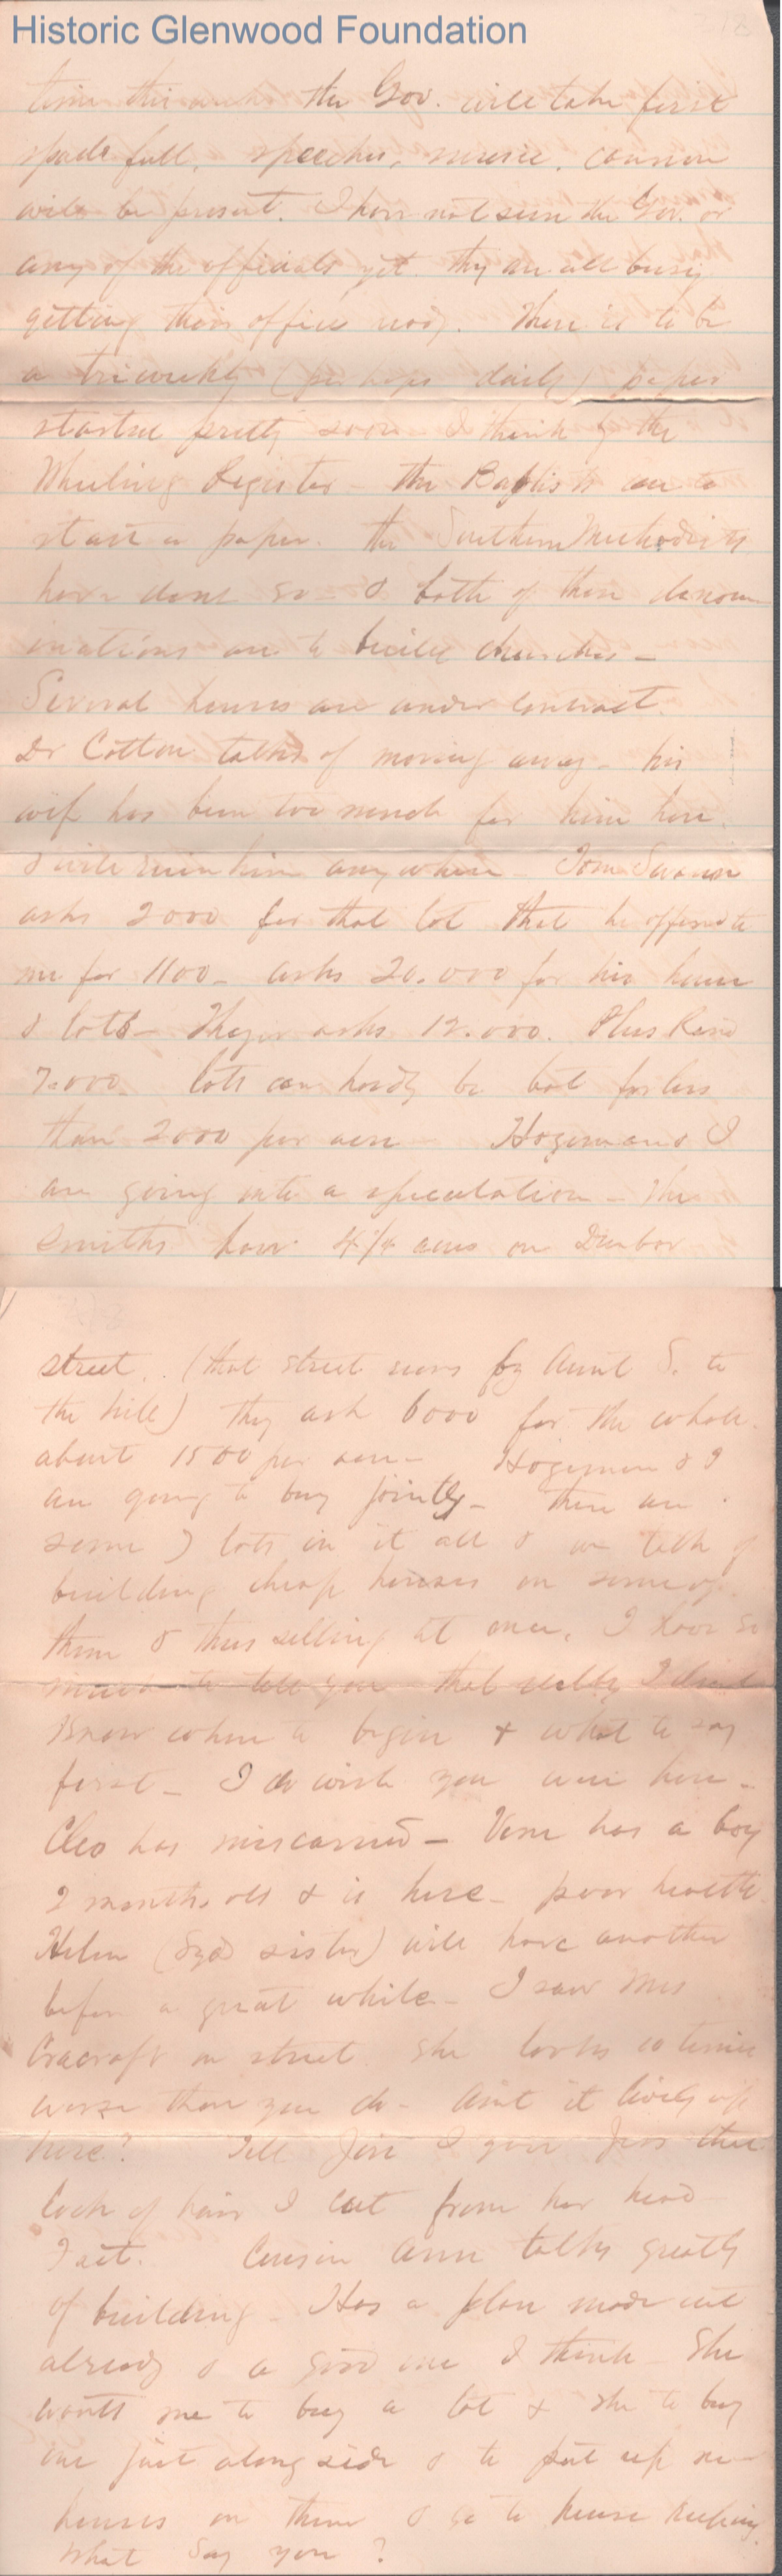 Historic Glenwood Foundation
time this week the Gov. will take first
spade full, speeches, music, cannon
will be present. I have not seen the Gov. or
any of the officials yet they are all busy
getting their office ready. There is to be
a triweekly (perhaps daily) paper
started pretty soon I think by the
Wheeling Register - the Baptists are to
start a paper. the Southern Methodists
have done so - & both of these denom
inations are to build churches -
Several houses are under contract.
Dr Cotton talks of moving away - his
wife has been too much for him here
& will ruin him anywhere Tom Swann
asks 2000 for that lot that he offered to
me for 1100 - asks 20.000 for his house
& lots - asks 12.000.
7.000 lots can hardly be bot for less
than 2000 per acre Hogeman & I
are going into a speculation - The
Smiths have 4 1/4 acres on Dunbar
street. (that street runs by Aunt S. to
the hill) they ask 6000 for the whole.
about 1500 per acre - Hogeman & I
are going to buy jointly - there are
some lots in it all & we talk of
building cheap houses on some of
them & thus selling at once. I have so
much to tell you that really I dont
know where to begin & what to say
first - I do wish you were here -
Cleo has miscarried - Vene has a boy
2 months old & is here - poor health
Helen ( sister) will have another
before a great while - I saw Mrs
Cracraft on street she looks 10 times
worse than you do - Aint it lively up
here? Tell Jin I gave Jess that
lock of hair I cut from her head
I cut. Cousin Ann talks greatly
of building - Has a plan made out
already & a good one I think She
wants me to buy a lot & she to buy
one just along side & to put up
houses on them & go to house keeping
What say you?